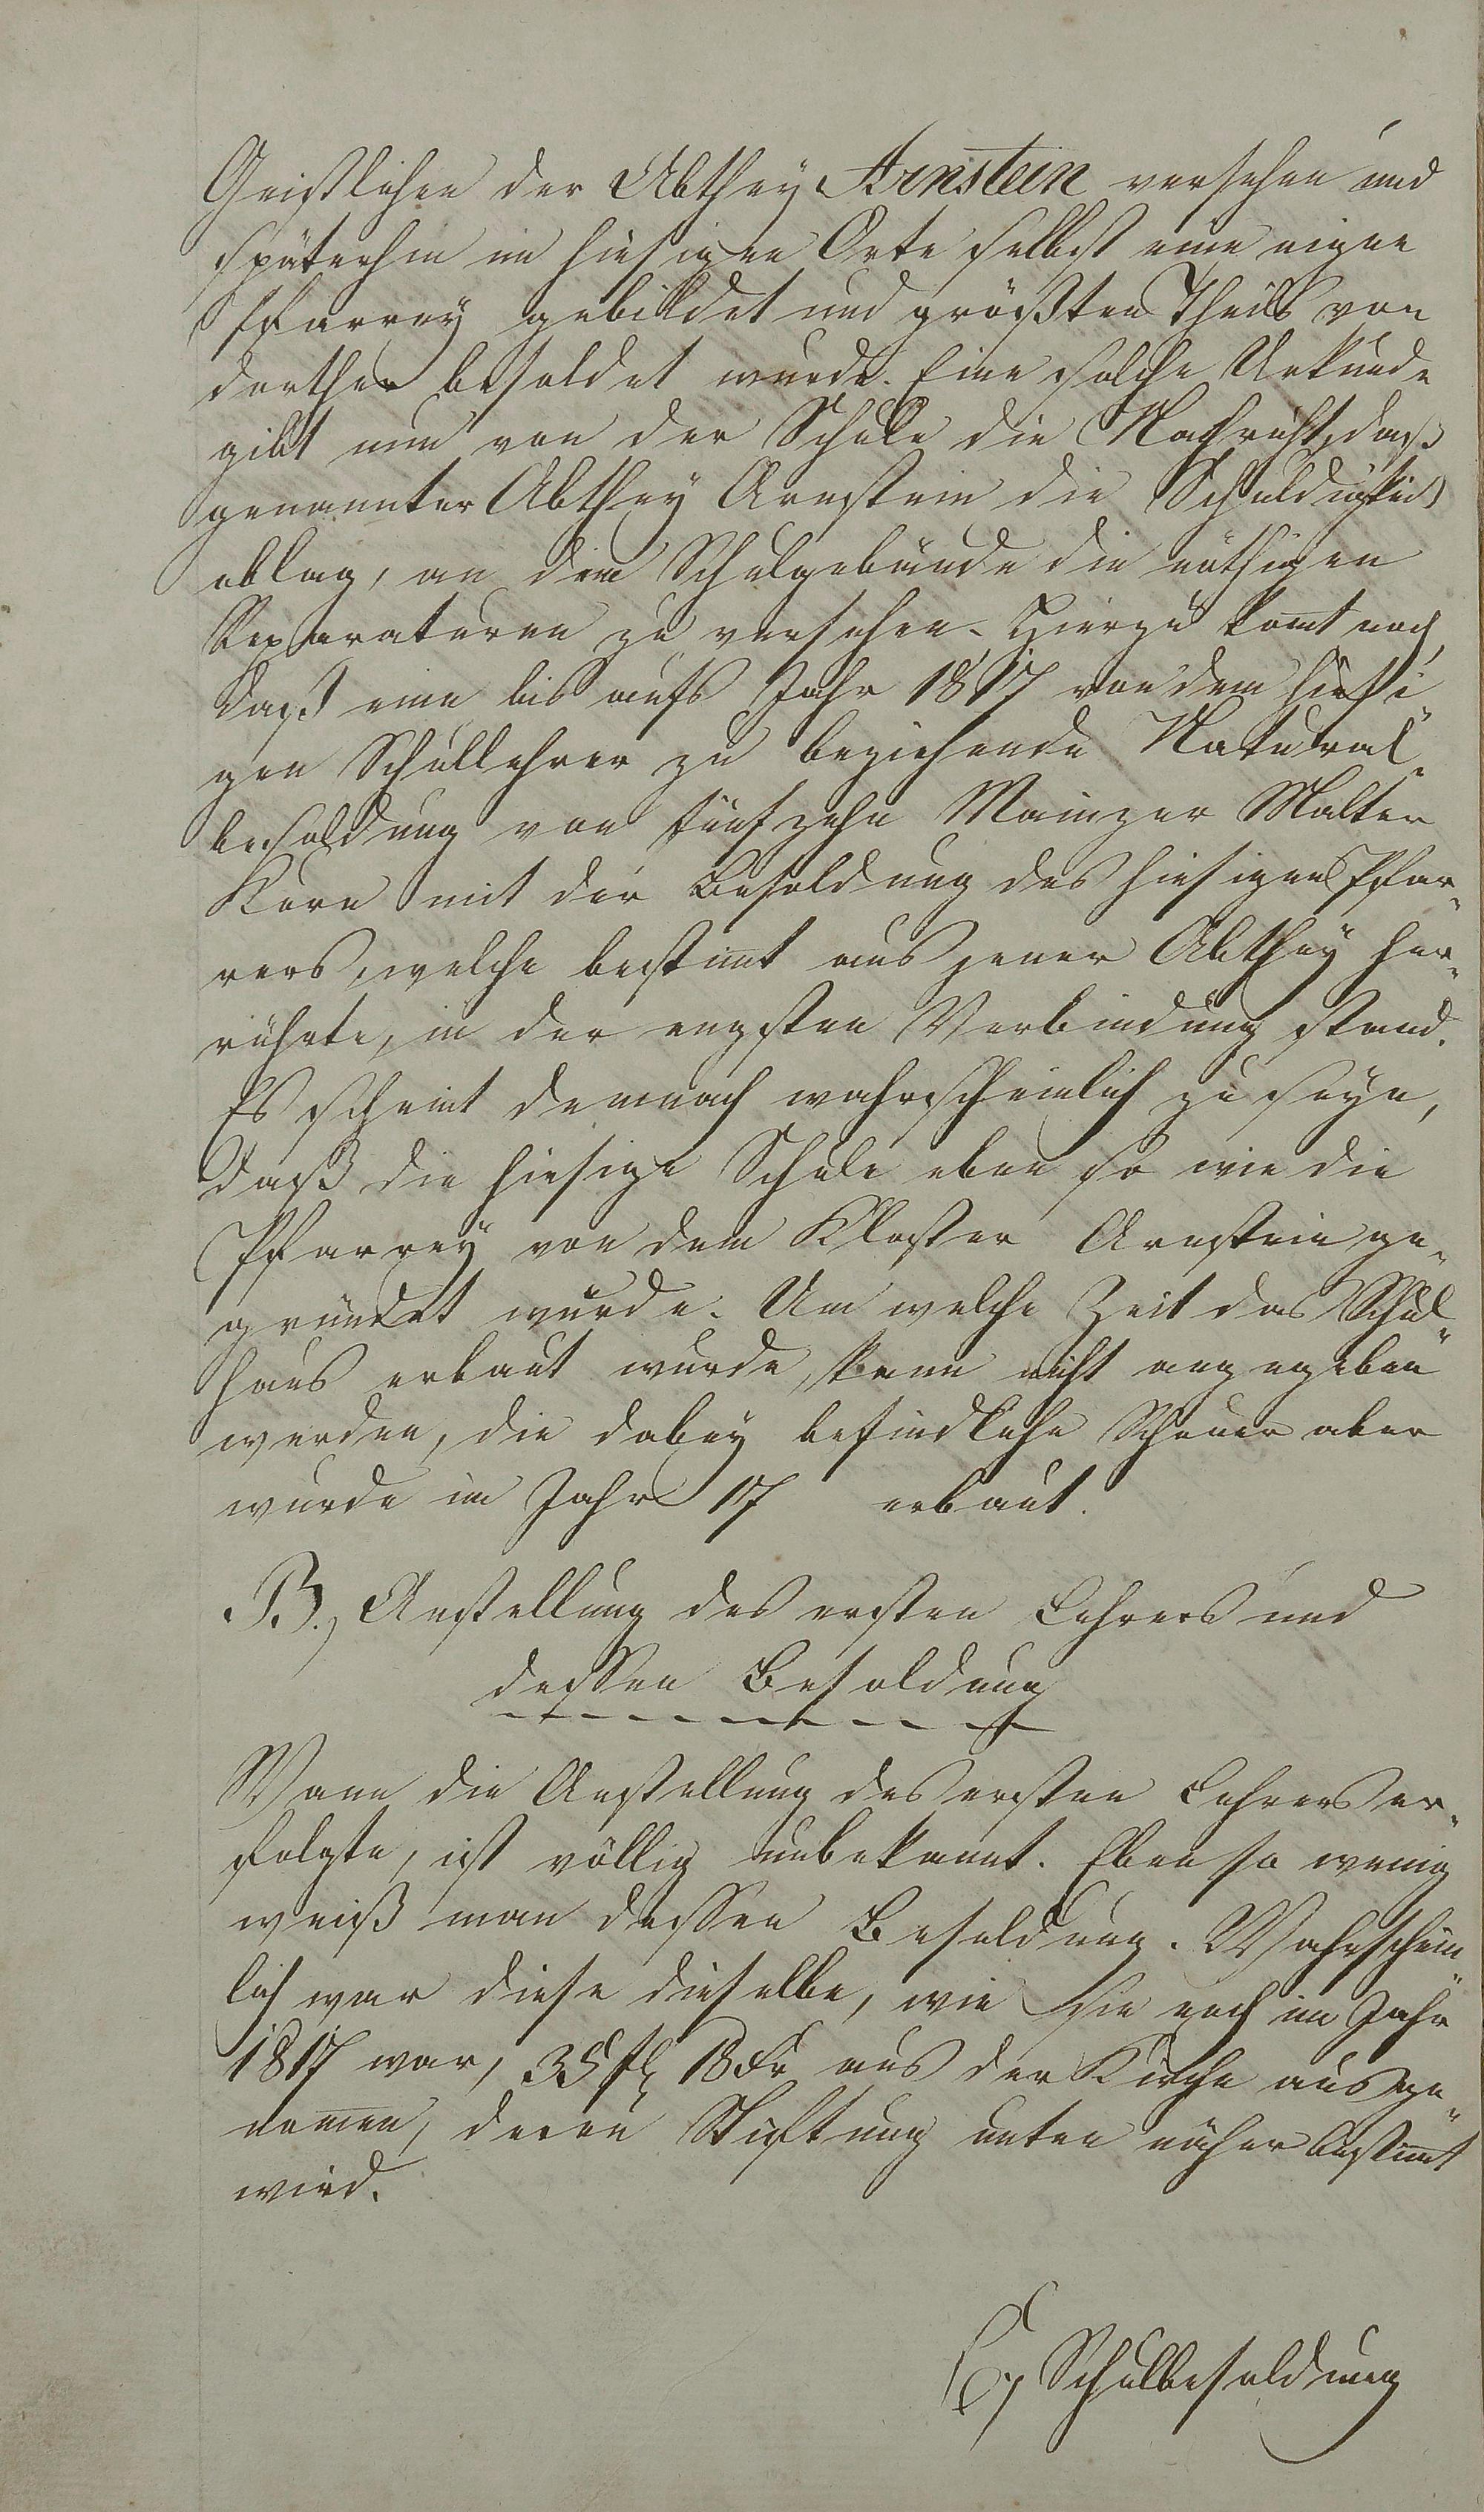 Geistlichen der Abthey Arnstein versehen und
späterhin im hiesigen Orte selbst eine eigne
Pfarrey gebildet und größten Theils von
dorther besoldet wurde. Eine solche Urkunde
gibt nun von der Schule die Nachricht, daß
genannter Abthey Arnstein die Schuldigkeit
oblag, an dem Schulgebäude die nöthigen
Reparaturen zu versehen. Hierzu komt noch,
daß eine bis aufs Jahr 1817 von dem hiesi„
gen Schullehrer zu beziehende Natural„
besoldung von fünfzehn Mainzer Malter
Korn mit der Besoldung des hiesigen Pfar„
rers, welche bestimt aus jener Abthey her„
rührte, in der engsten Verbindung stand.
Es scheint demnach wahrscheinlich zu seyn,
daß die hiesige Schule eben so wie die
Pfarrey von dem Kloster Arnstein ge„
gründet wurde. Um welche Zeit das Schul„
haus erbaut wurde, kann nicht angegeben
werden, die dabey befindliche Scheuer aber
wurde im Jahr 17 erbaut.
B., Anstellung des ersten Lehrers und
dessen Besoldung
Wann die Anstellung des ersten Lehrers er„
folgte, ist völlig unbekannt. Eben so wenig
weiß man dessen Besoldung. Wahrschein„
lich war diese dieselbe, wie sie noch im Jahr
1817 war, 35 fl 18 Kr aus der Kirche ausge„
nomen, deren Stiftung unten näher bestimt
wird.
C, Schulbesoldung